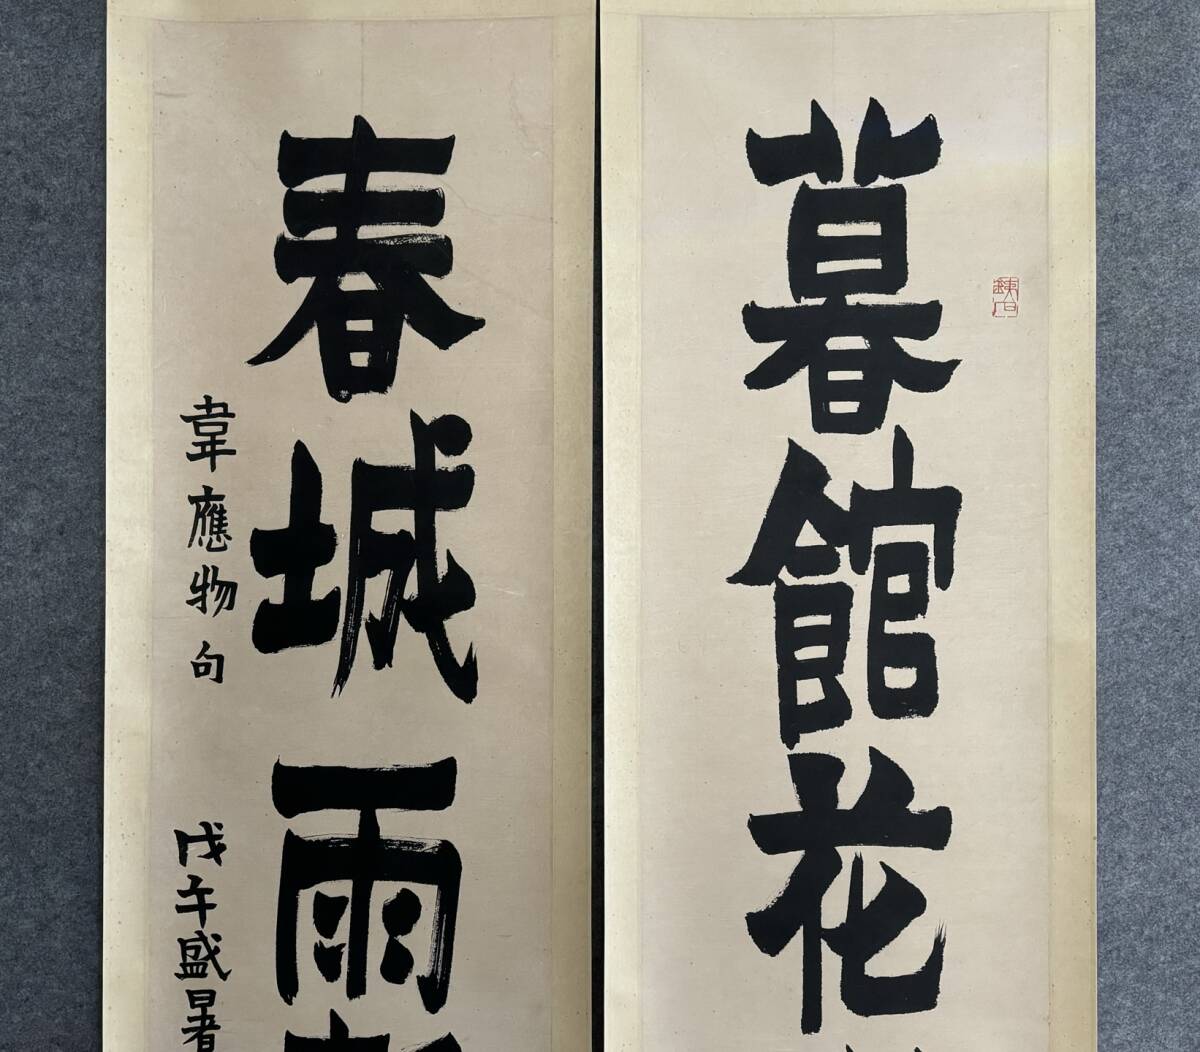 暮館花
春城雨
韋應物句
戊午盛暑